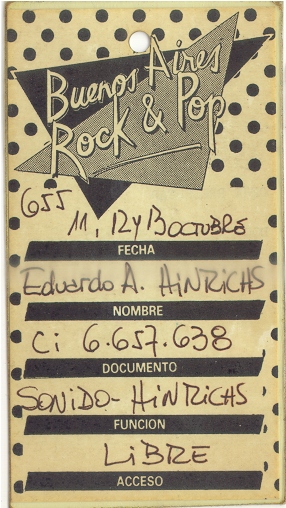 Buenos Aires
Rock & Pop
655
11, 12 y 13 OCTUBRE
FECHA
Eduardo A. HiNRiCHS
NOMBRE
Ci 6.657.638
DOCUMENTO
SONiDO - HiNRiCHS
FUNCION
LiBRE
ACCESO